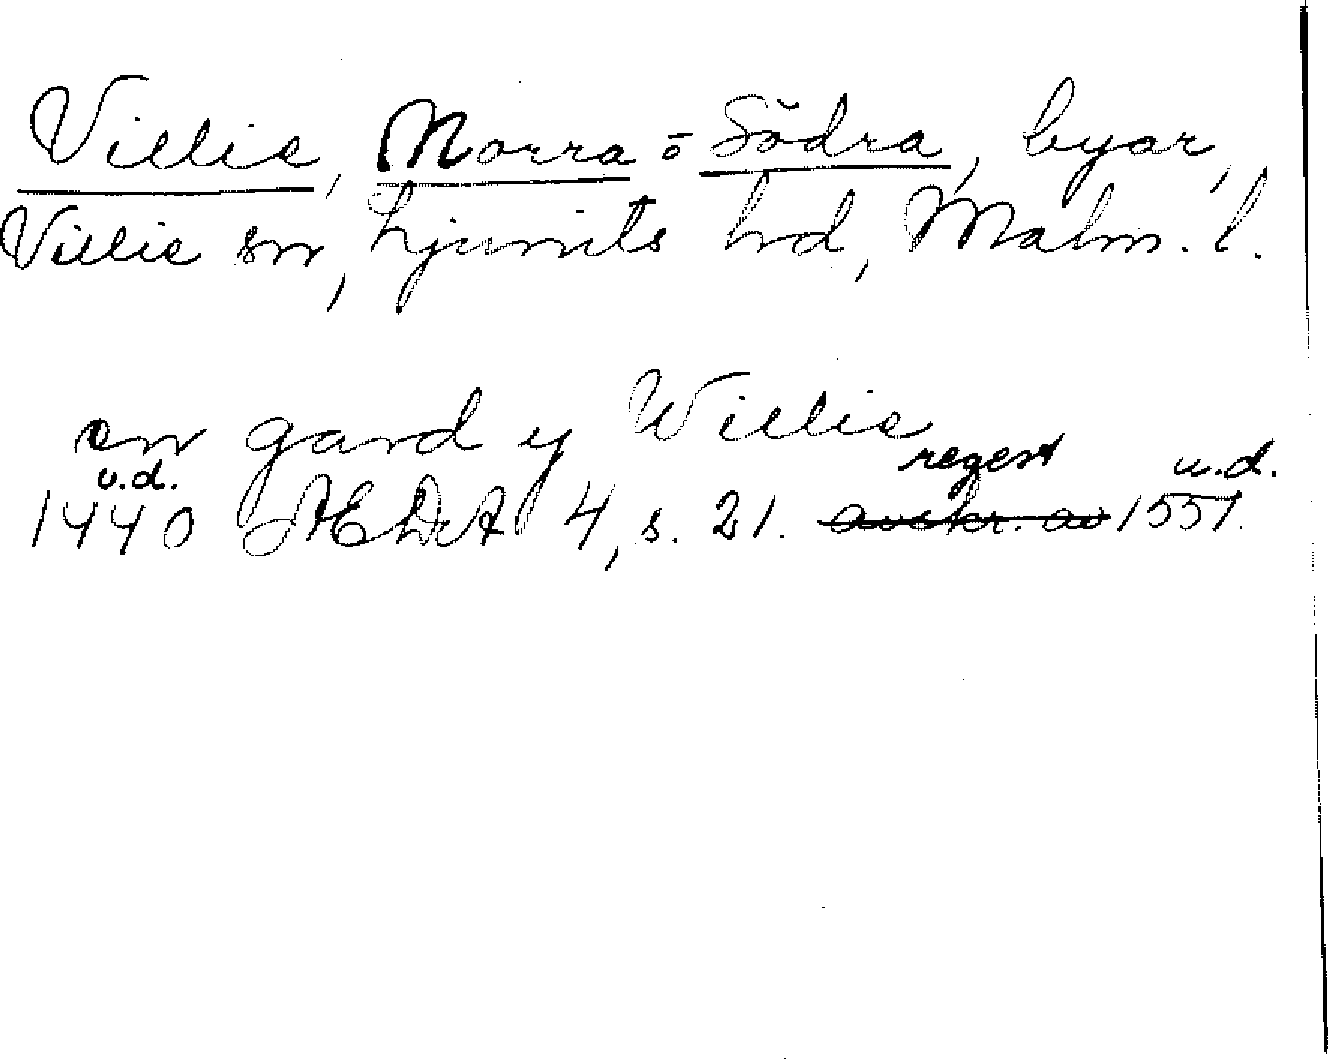 Villie, Norra o Södra, byar,
Villie sn, Ljunits hd, Malm. l.
en gard y Willie
u.d. regest u.d.
1440 ÆDA 4, s. 21. avskr. av 1551.